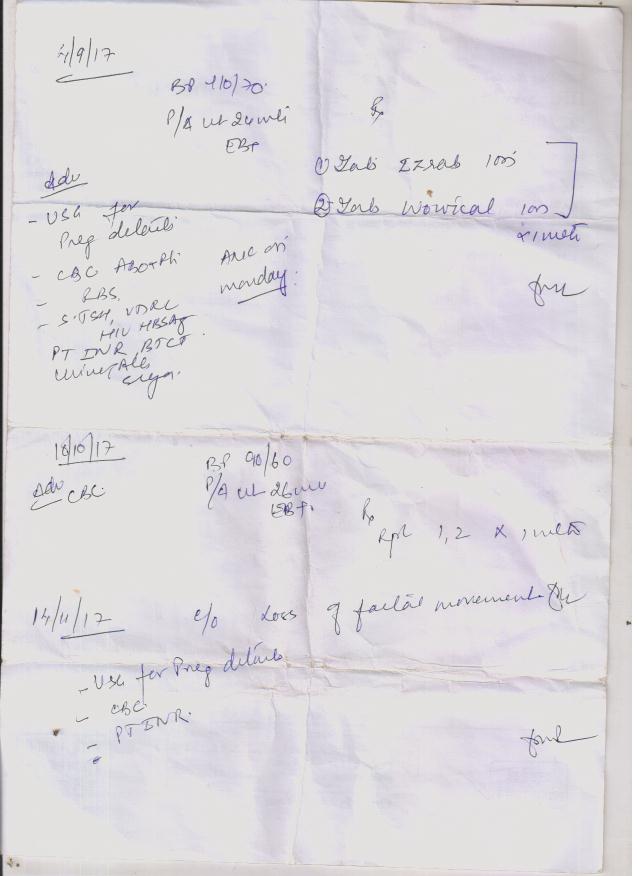 4/9/17
BP 110/70
P/A ut 24 wk
EBP
Rx
① Tab Ezrab 10s
② Tab Wowical 10s
x 1 mth
Adv
- USG for
Preg details
- CBC ABO+Rh
- RBS
- S.TSH, VDRL
HIV HBSAg
PT INR, BTCT
Urine Alb
Sugar.
ANC on
monday.
16/10/17
Adv CBC
BP 90/60
P/A ut 26 wk
EBP.
Rx
Rpt 1, 2 x 1 mth
14/11/17
c/o Loss of faetal movements
- USG for Preg details
- CBC
- PT INR.